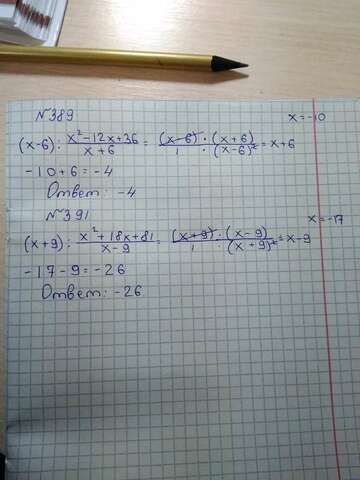 №389 x=-10
(x-6): x²-12x+36 / x+6 = (x-6)·(x+6) / 1·(x-6)² = x+6
-10+6=-4
Ответ: -4
№391 x=-17
(x+9): x²+18x+81 / x-9 = (x+9)·(x-9) / 1·(x+9)² = x-9
-17-9=-26
Ответ: -26